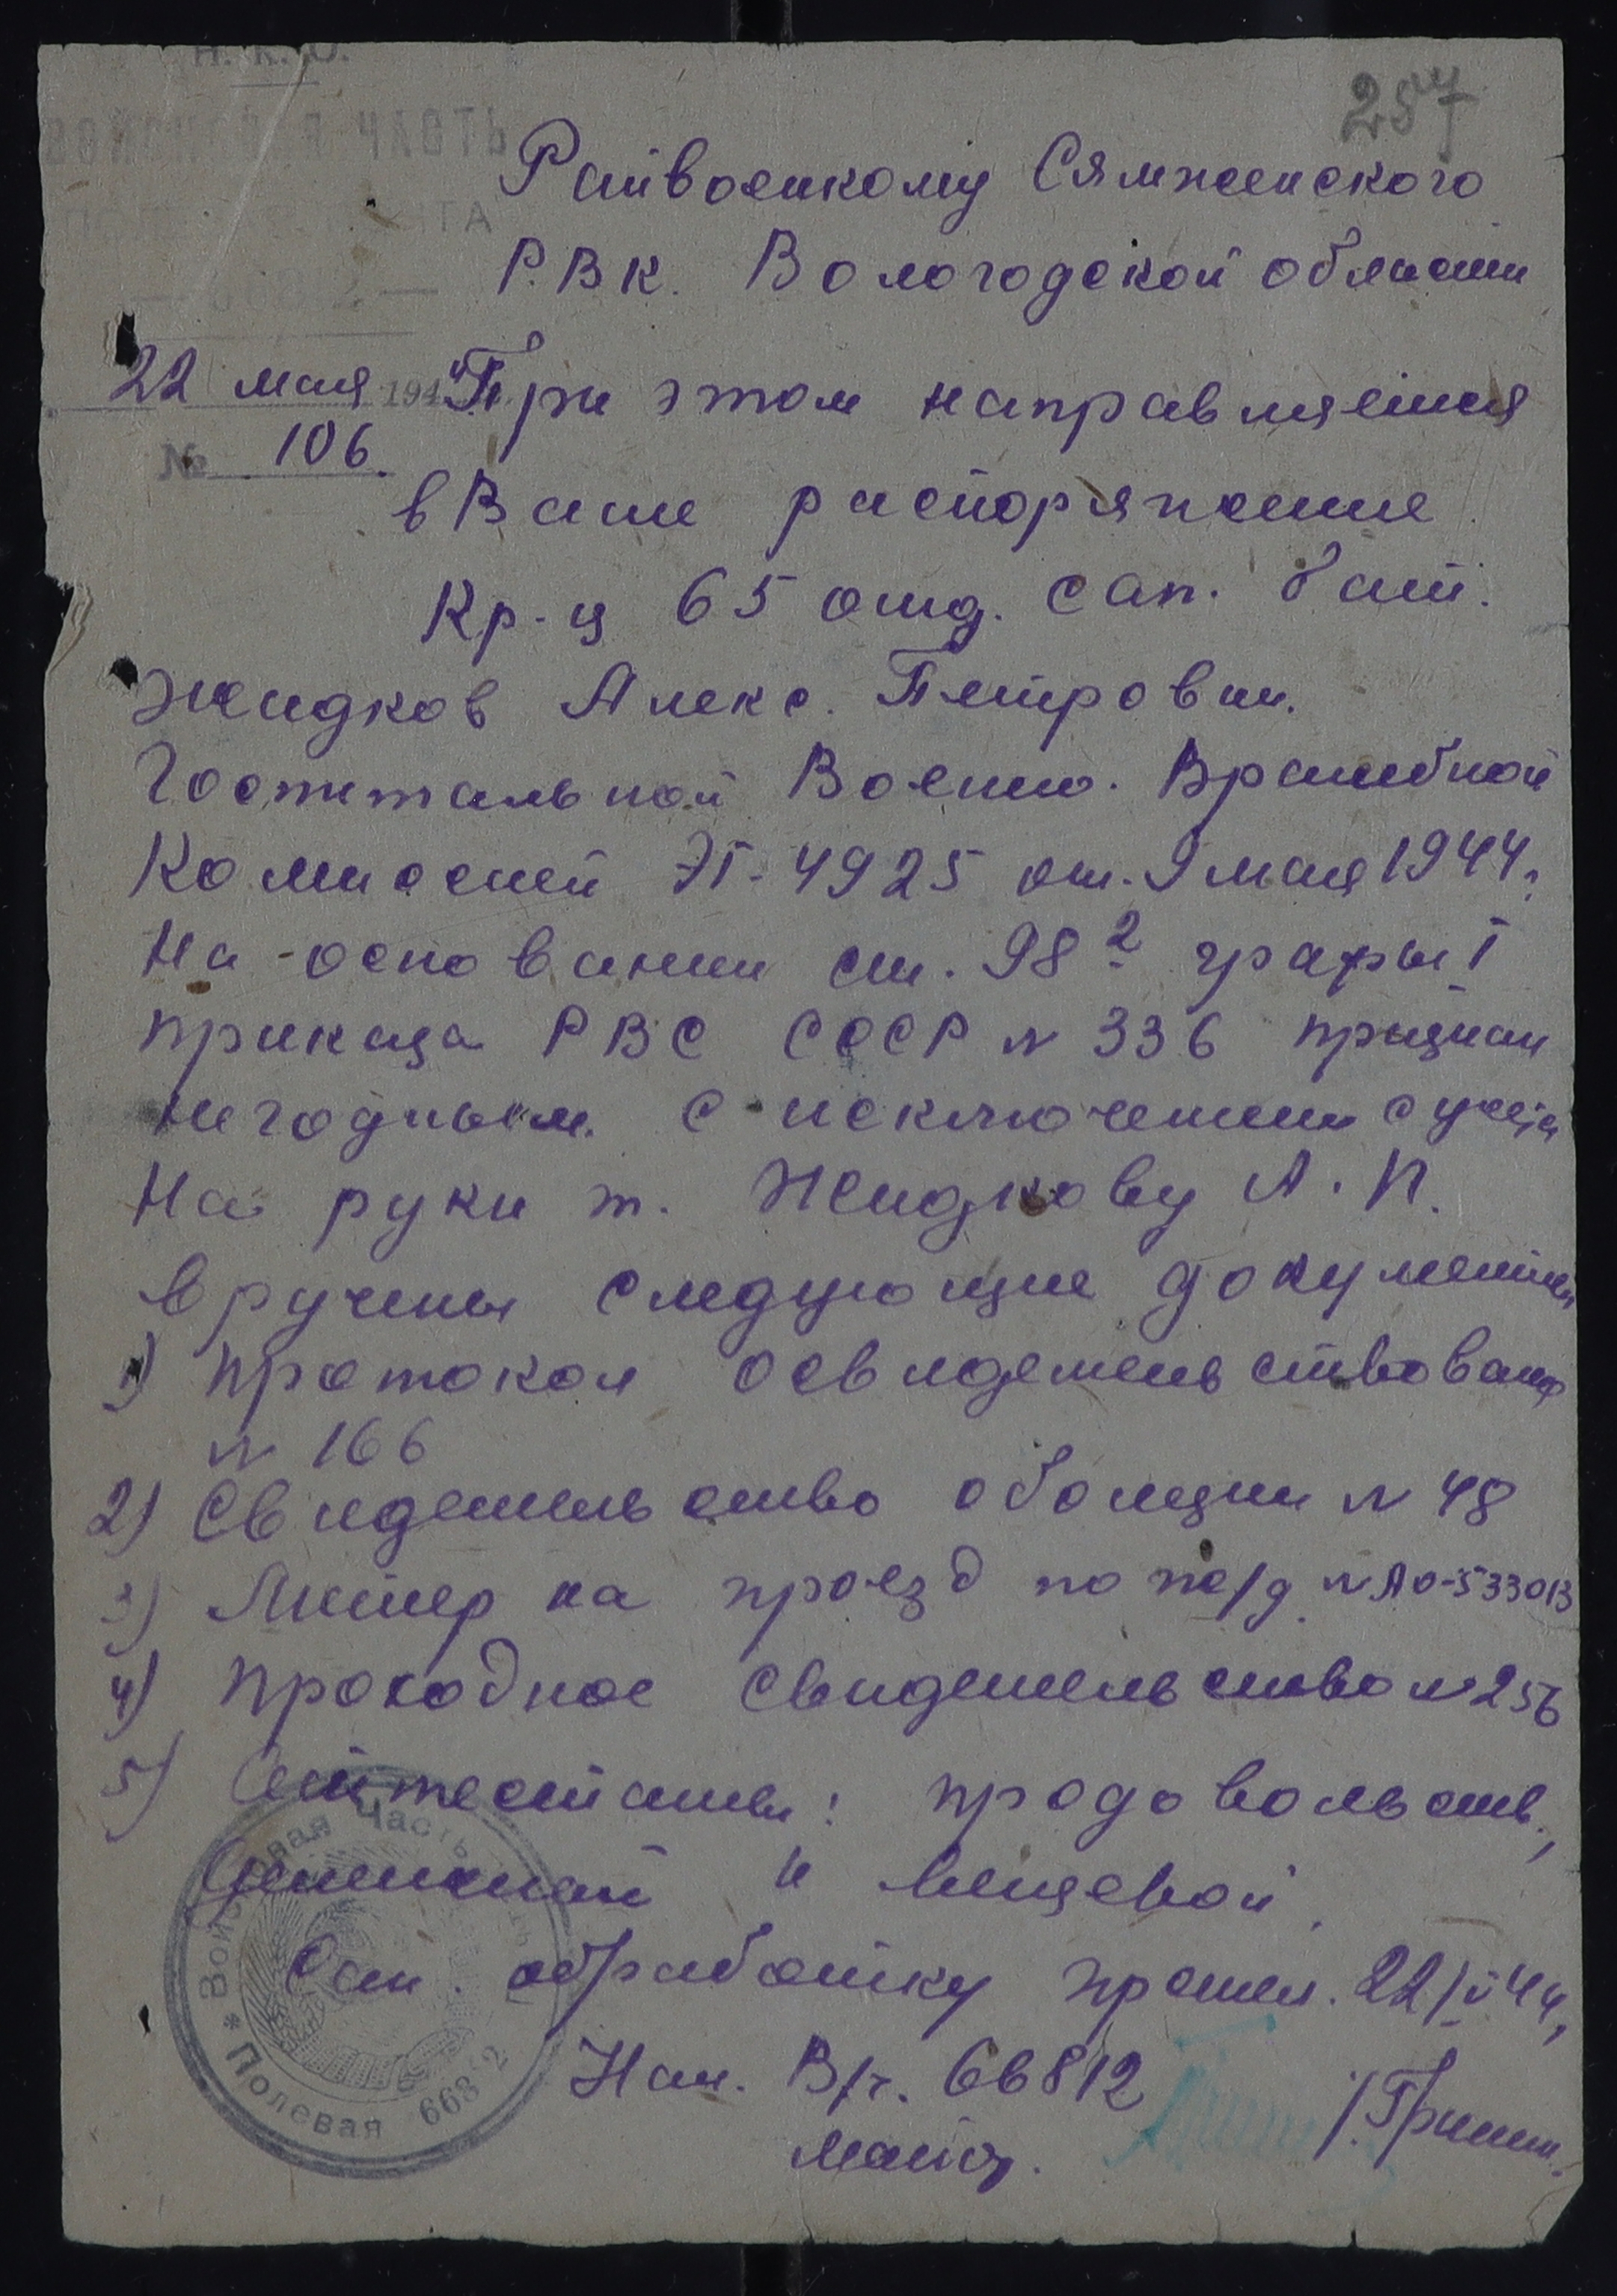 Н. К. О.
257
ВОЙСКОВАЯ ЧАСТЬ
Райвоенкому Сямженского
Р.В.К. Вологодской области
22 мая 194
При этом направляется
№ 106.
в Ваше распоряжение
Кр-ц 65 отд. сап. бат.
Жидков Алекс. Петрович.
Госпитальной Военно. Врачебной
Комиссией ЭГ-4925 от. 9 мая 1944г
На основании ст. 98² графы I
приказа РВС СССР N 336 признан
негодным. с исключением с учета
На руки т. Жидкову А. П.
вручены следующие документы
1) протокол освидетельствован
N 166
2) Свидетельство о болезни N 48
3) Литер на проезд по ж/д. N АО-533013
4) проходное свидетельство N 256
5) Аттестаты: продовольств.,
Денежный и вещевой.
Сан. обработку прошел. 22/V 44,
Нач. В/ч. 66812
майор.
Войсковая Часть
* Полевая 668 2